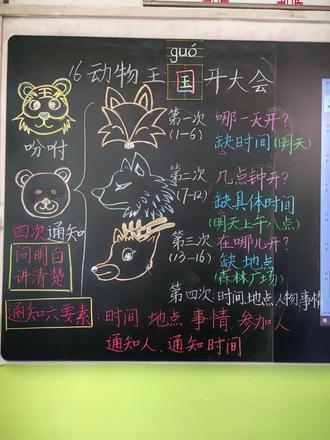 guó
16动物王国开大会
吩咐
第一次
(1-6)
哪一天开?
缺时间(明天)
第二次
(7-12)
几点钟开?
缺具体时间
(明天上午八点)
四次通知
问明白
讲清楚
第三次
(13-16)
在哪儿开?
缺地点
(森林广场)
第四次:时间,地点人物事情
通知六要素:时间、地点 事情、参加人
通知人、通知时间